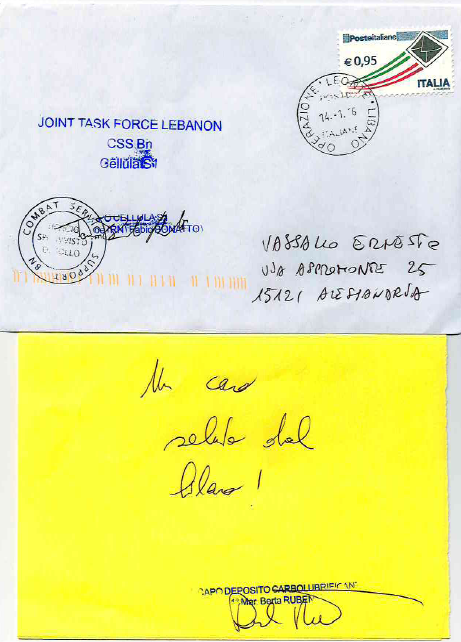 Posteitaliane
€ 0,95
ITALIA
OPERAZIONE • LEONTE • LIBANO
14.-1.16
ITALIANE
JOINT TASK FORCE LEBANON
CSS Bn
Cellula S1
COMBAT SERVICE SUPPORT BN
CELLULA S1
Fabio DONATTO
VASSALLO ERNESTO
VIA ASPROMONTE 25
15121 ALESSANDRIA
Un caro
saluto dal
Libano!
CAPO DEPOSITO CARBOLUBRIFICANTI
Mar. Berta RUBEN